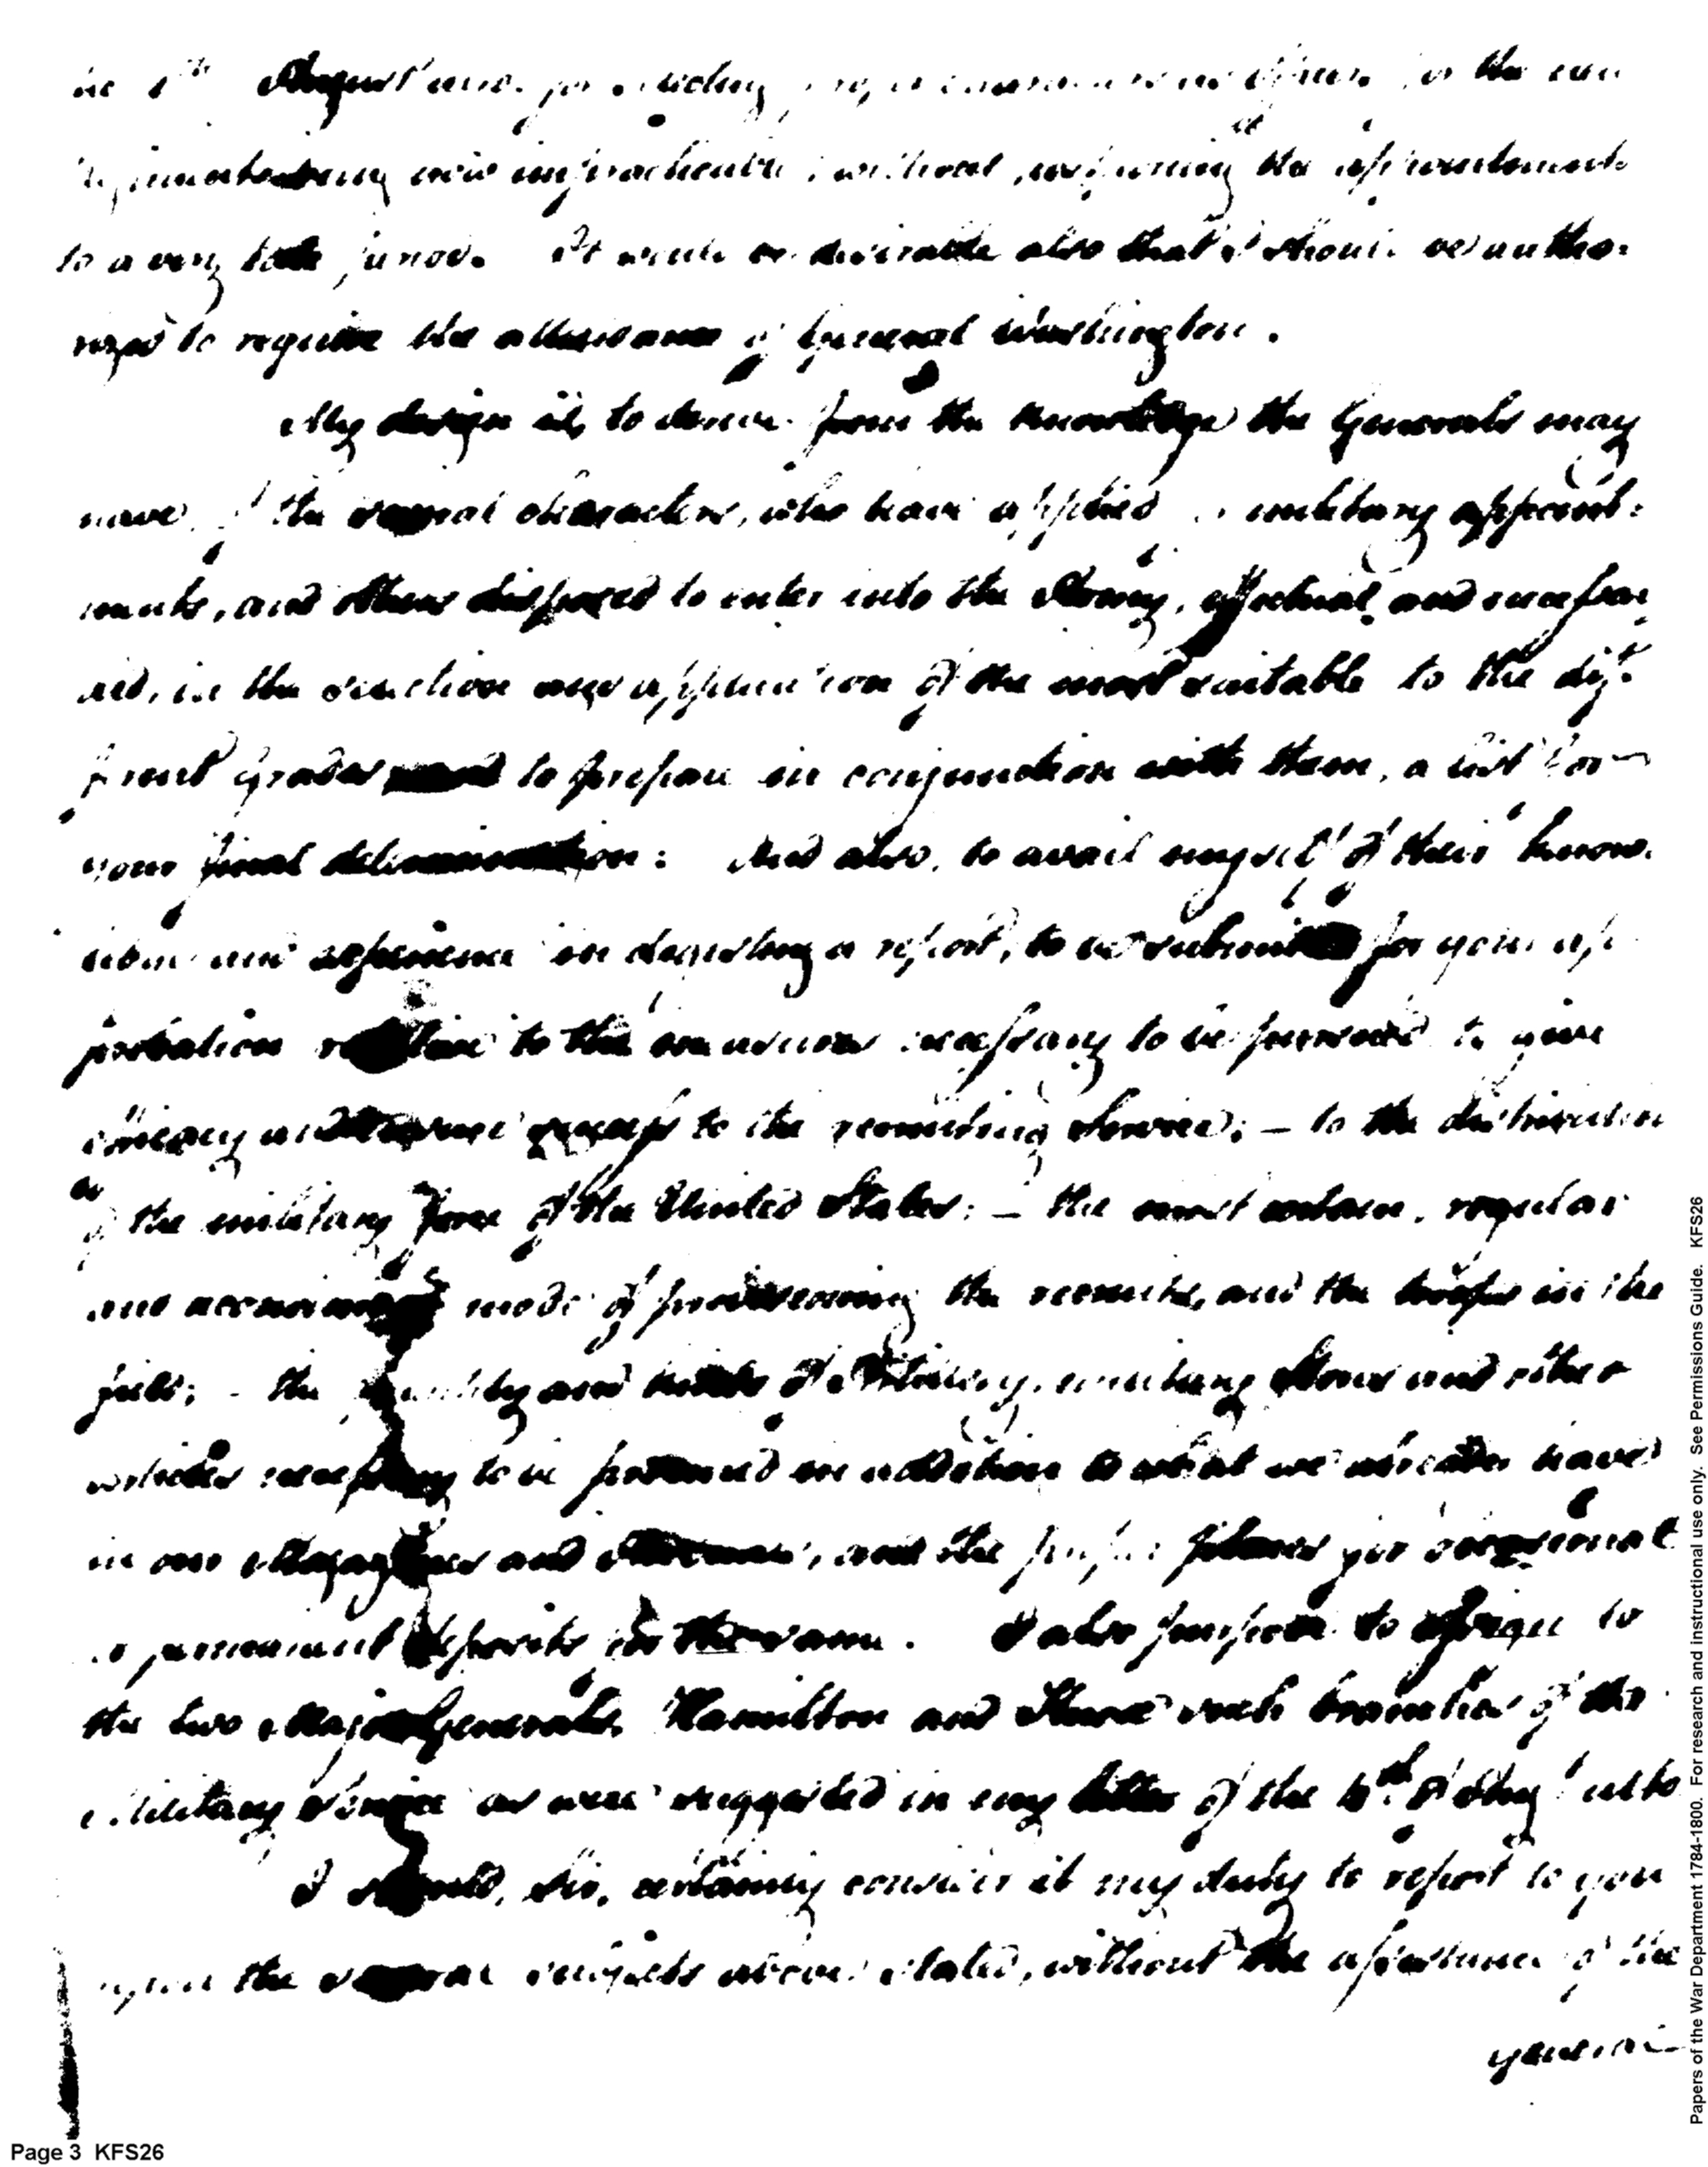 August for the
now impracticable, without postponing the appointments
to a very late period. It would be desirable also that I should be autho:
rized to require the attendance of General Washington.
My design is, to derive from the knowledge the Generals may
have, of the several characters, who have applied military appoint:
ments, and others disposed to enter into the Army, effectual and necessary
aid, in the selection and application of the most suitable to the dif:
ferent grades to prepare in conjunction with them, a list for
your final determination: And also, to avail myself of their know.
and experience in digesting a report, to be submitted for your ap
probation relative to the measures necessary to be pursued to give
efficacy and success to the recruiting Service; — to the distribution
of the military force of the United States; — the most certain, regular
and mode of provisioning the recruits, and the troops in the
field; - the quantity and kinds of Artillery, military Stores and other
articles necessary to be procured in addition to what we already have
in our Magazines and Arsenals, and the proper places for occasional
or permanent deposits for the same. I also propose to assign to
the two Major Generals Hamilton and such branches of the
Military Service as were suggested in my letter of the ulto
I should, Sir, certainly consider it my duty to report to you
upon the several subjects above stated, without the assistance of the
general
Page 3 KFS26
Papers of the War Department 1784-1800. For research and instructional use only. See Permissions Guide. KFS26